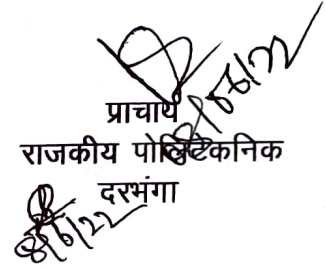 प्राचार्य
राजकीय पोलिटेकनिक
दरभंगा
8/6/22